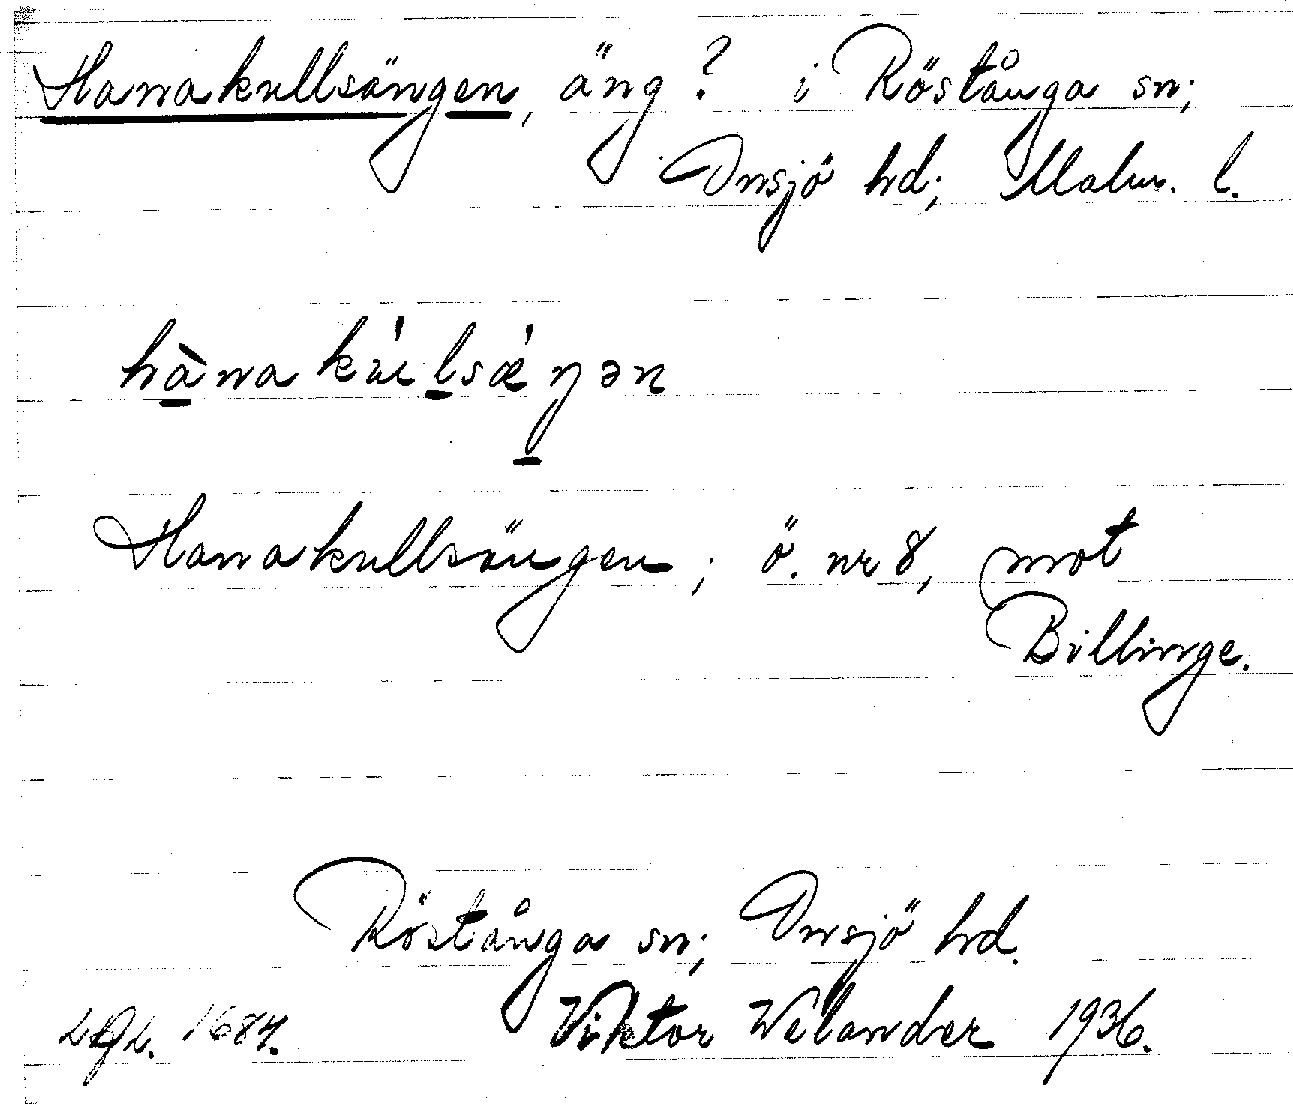 Hanakullsängen, äng? i Röstånga sn;
Onsjö hd; Malm. l.
hànakúlsǽŋən
Hanakullsängen; ö. nr 8, mot
Billinge.
Röstånga sn; Onsjö hd.
1684. Viktor Welander 1936.